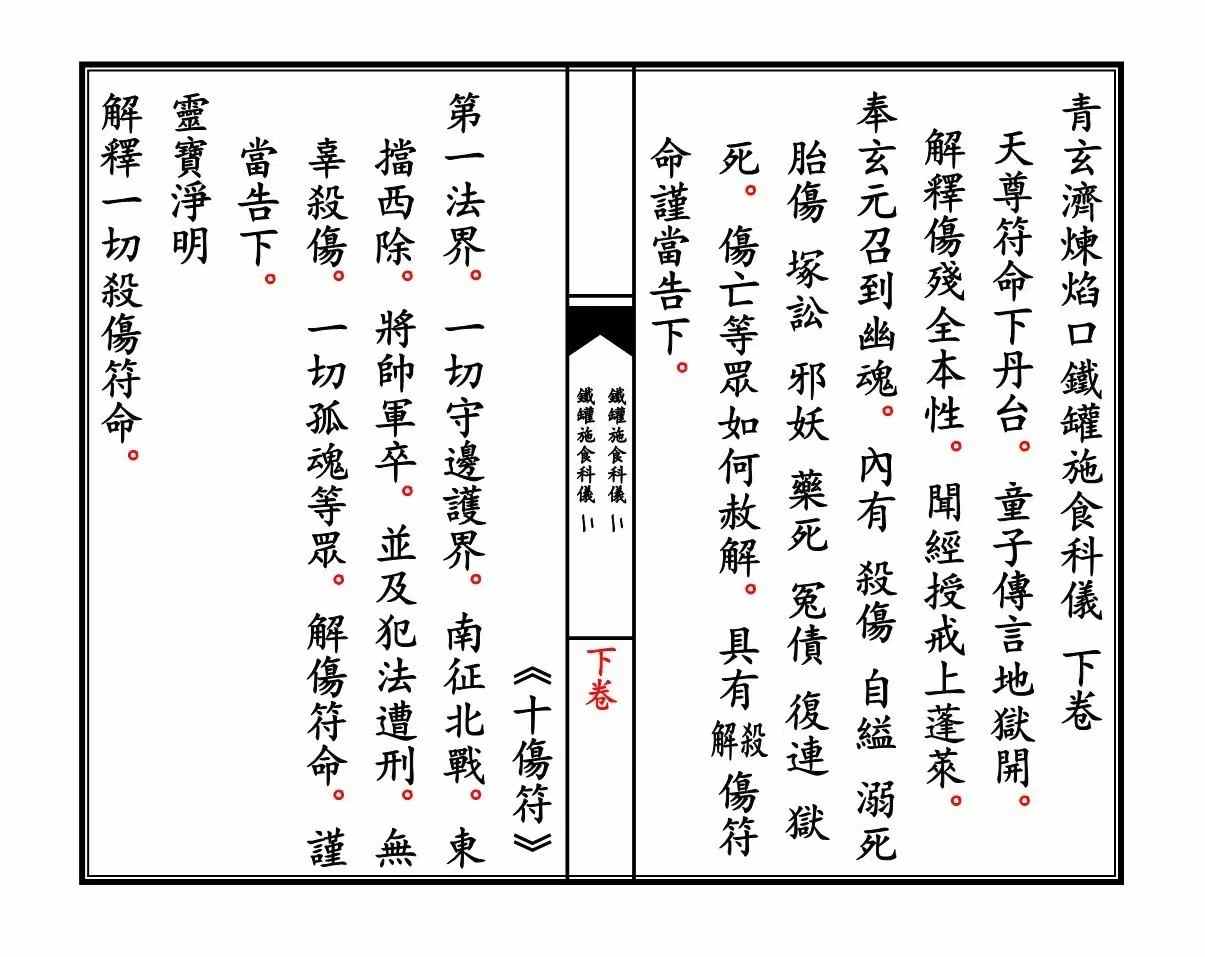 青玄濟煉焰口鐵罐施食科儀 下卷
天尊符命下丹台。童子傳言地獄開。
解釋傷殘全本性。聞經授戒上蓬萊。
奉玄元召到幽魂。內有 殺傷 自縊 溺死
胎傷 塚訟 邪妖 藥死 冤債 復連 獄
死。傷亡等眾如何赦解。具有殺解傷符
命謹當告下。
鐵罐施食科儀 〢
鐵罐施食科儀 〢
下卷
《十傷符》
第一法界。一切守邊護界。南征北戰。東
擋西除。將帥軍卒。並及犯法遭刑。無
辜殺傷。一切孤魂等眾。解傷符命。謹
當告下。
靈寶淨明
解釋一切殺傷符命。